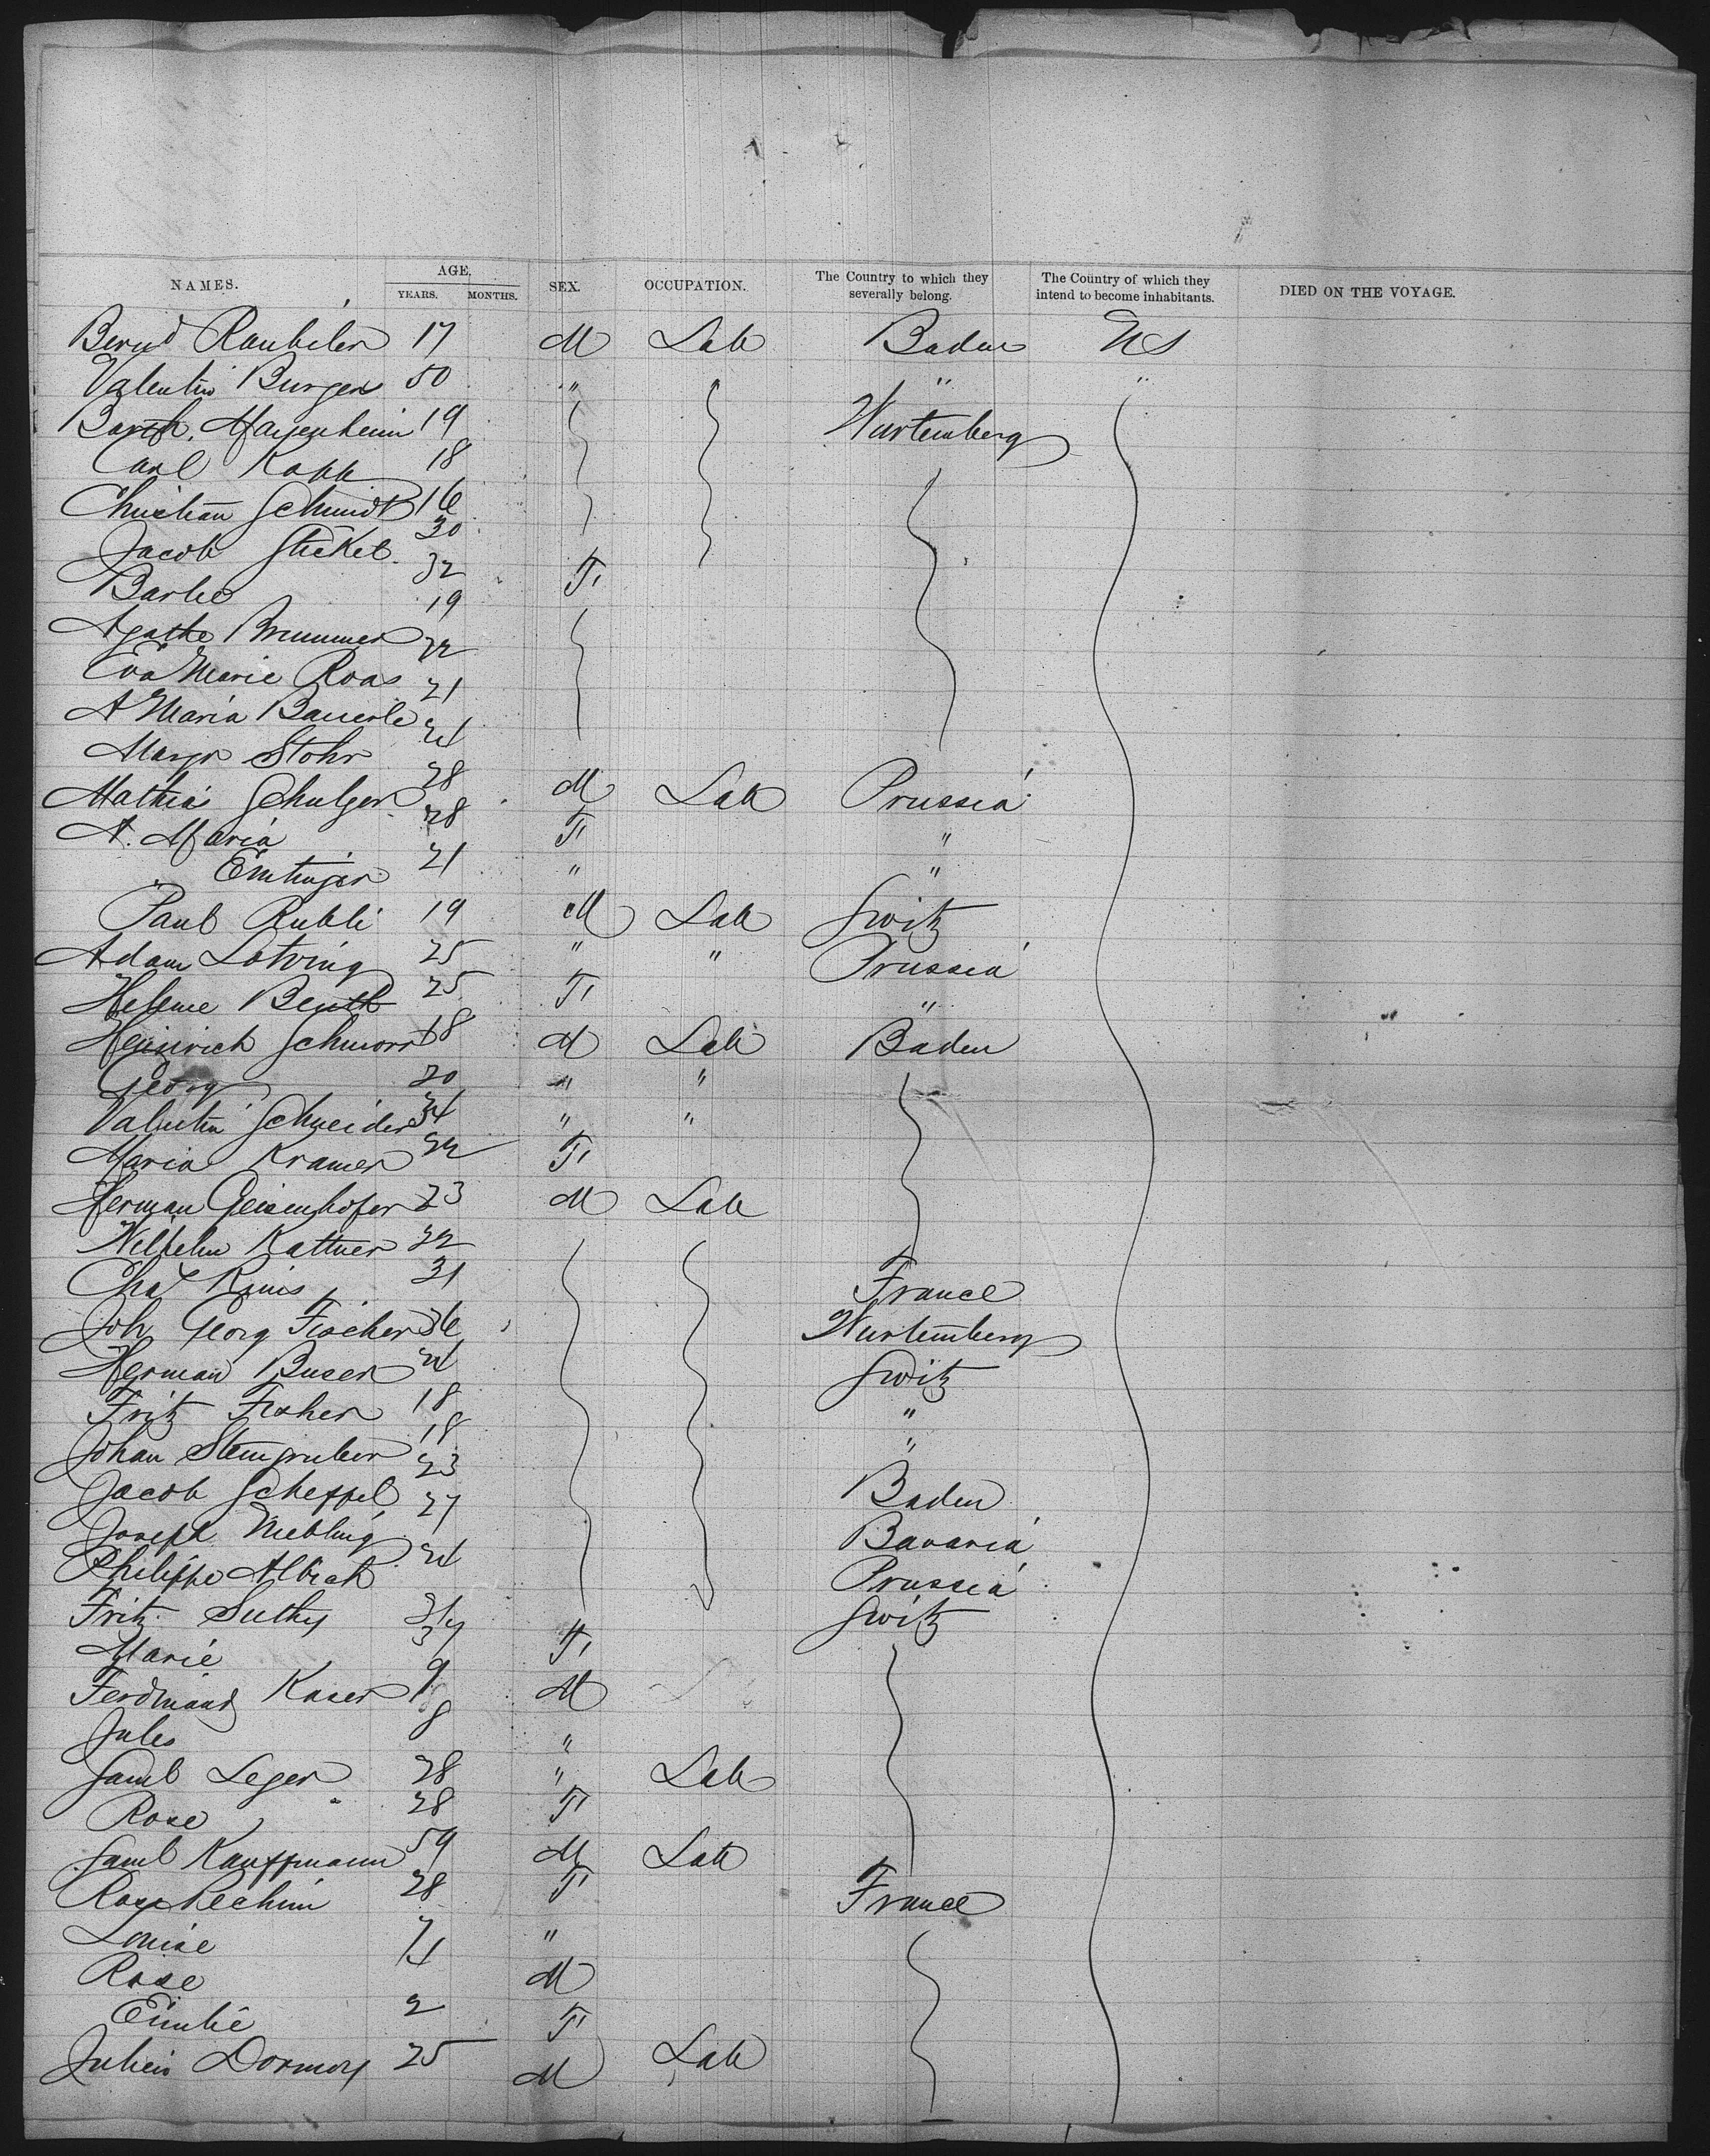 NAMES. AGE. YEARS. MONTHS. SEX. OCCUPATION. The Country to which they severally belong. The Country of which they intend to become inhabitants. DIED ON THE VOYAGE.
17 M Lab Baden US
Valentin Burger 50 " " "
19 Wurtemberg
Carl Kopp 18
Christian Schmidt 16
Jacob Stickel 30
Barbe 32 F
Agathe Brummer 19
Eva Marie Roas 22
A Maria Bauerle 21
Margr Stohr 24
Mathias 28 M Lab Prussia
A. Maria 28 F "
" 21 " "
Paul Rubli 19 M Lab Switz
Adam 25 " " Prussia
Helene 25 F "
Heinrich 18 M Lab Baden
Georg 20 " "
Valentin Schneider 34 " "
Maria Kramer 22 F
Herman Geisenhofer 23 M Lab
Wilhelm Kattner 22
Chas 31 France
Joh Georg Fischer 36 Wurtemberg
Herman Buser 24 Switz
Fritz Fisher 18 "
Johan Steingruber 18 "
Jacob Scheffel 23 Baden
Joseph 27 Bavaria
Philippe 24 Prussia
Fritz Switz
Marie F
Ferdinand Kaser 9 M
Jules 8 "
Saml Leger 28 " Lab
Rose 28 F
Saml Kauffmann 59 M Lab
28 F France
Louise 7 "
Rose 4 M
Emilie 2 F
Julien Dormoy 25 M Lab